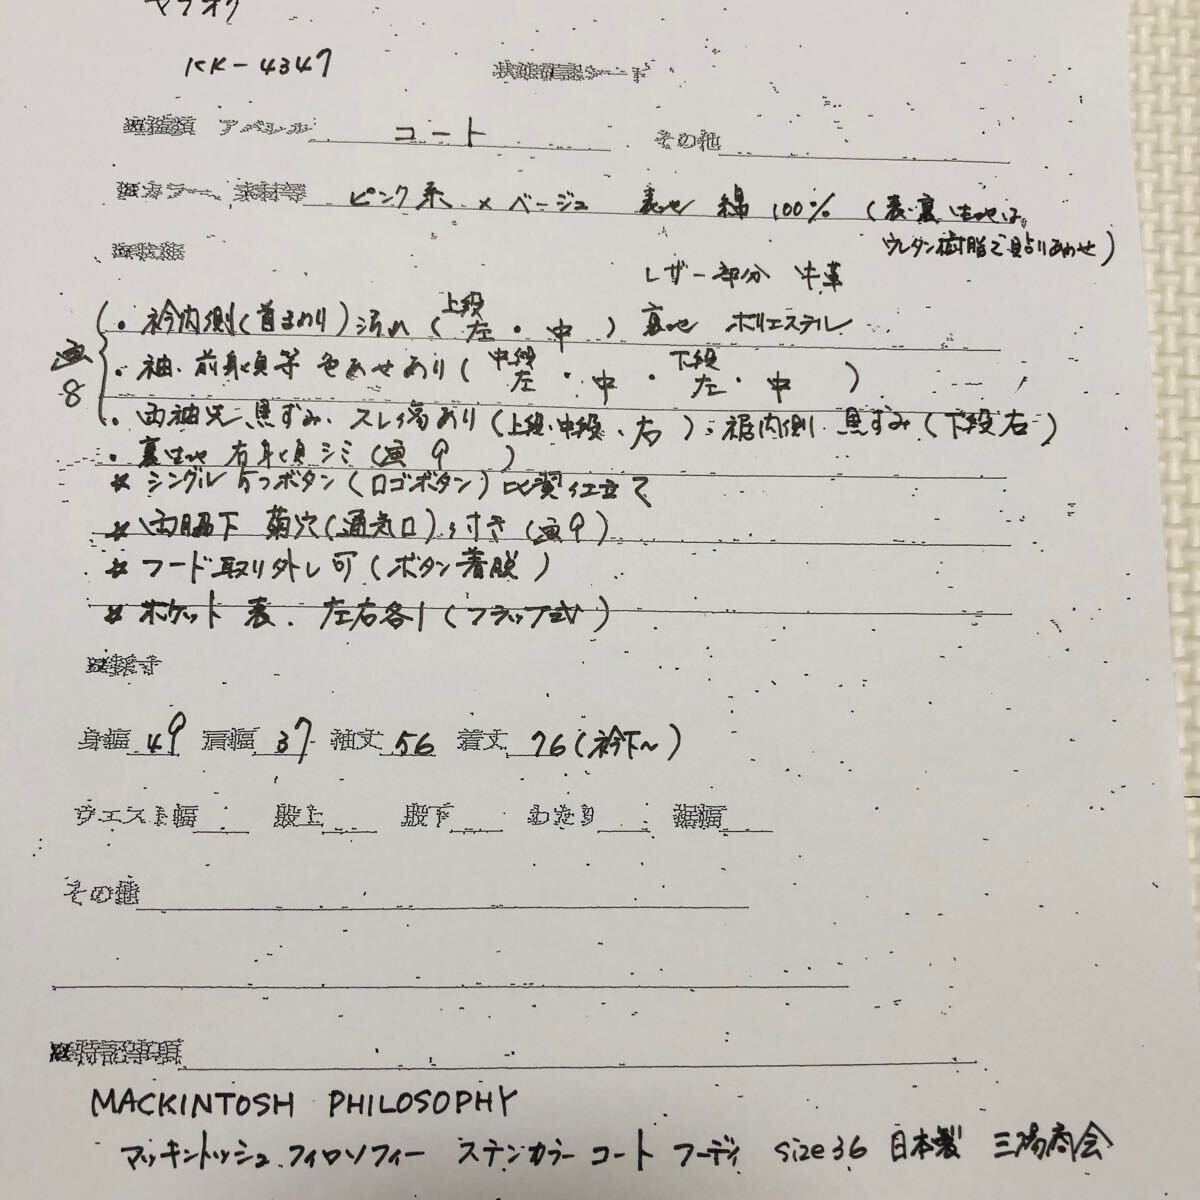 ヤフオク
KK-4347
状態確認シート
※種類 アパレル コート その他
※カラー、素材等 ピンク系 × ベージュ 表地 綿 100% (表・裏生地は
ウレタン樹脂で貼りあわせ)
※状態 レザー部分 牛革
・衿内側(首まわり)汚れ(上段 左・中) 裏地 ポリエステル
画8 ・袖・前身頃等 色あせあり(中段 左・中・下段 左・中)
・両袖先 黒ずみ、スレ傷あり(上段・中段・右)・裾内側 黒ずみ(下段右)
・裏生地 右身頃シミ(画9)
* シングル5つボタン(ロゴボタン)比翼仕立て
* 両脇下 菊穴(通気口)付き(画9)
* フード取り外し可(ボタン着脱)
* ポケット 表、左右各1(フラップ式)
※採寸
身幅 49 肩幅 37 袖丈 56 着丈 76(衿下~)
ウエスト幅 股上 股下 わたり 裾幅
その他
※特記事項
MACKINTOSH PHILOSOPHY
マッキントッシュ フィロソフィー ステンカラー コート フーディ size36 日本製 三陽商会